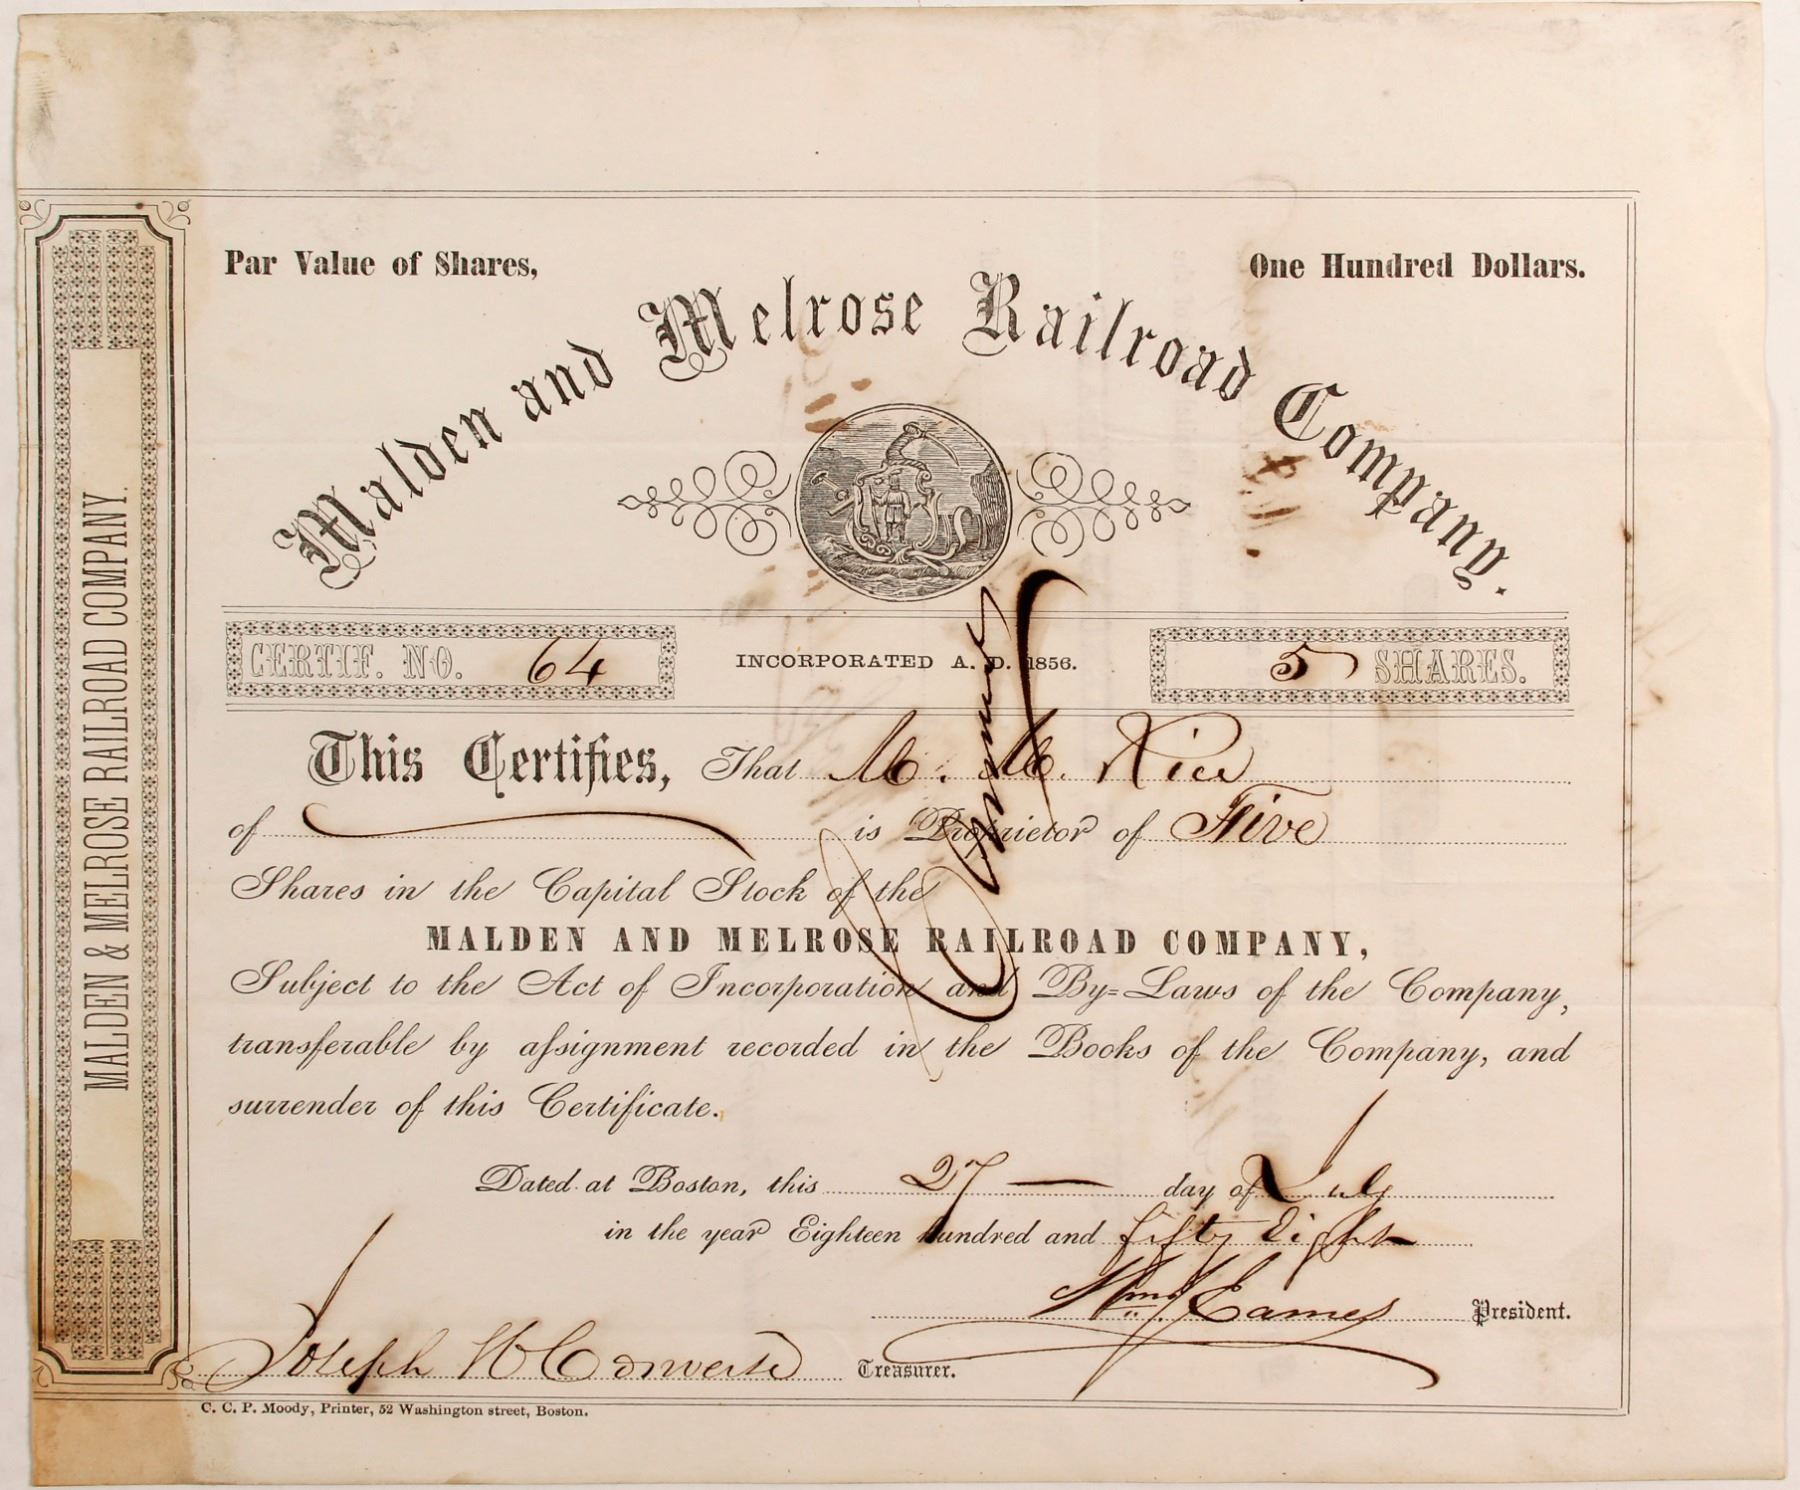 Par Value of Shares,
One Hundred Dollars.
Malden and Melrose Railroad Company.
CERTIF. NO. 64
INCORPORATED A. D. 1856.
5 SHARES.
This Certifies, That M. M. Rice
of is Proprietor of Five
Shares in the Capital Stock of the
MALDEN AND MELROSE RAILROAD COMPANY,
Subject to the Act of Incorporation and By=Laws of the Company,
transferable by aſsignment recorded in the Books of the Company, and
surrender of this Certificate.
Dated at Boston, this 27 — day of July
in the year Eighteen hundred and fifty Eight
Wm. Eames President.
Joseph H Converse Treasurer.
C. C. P. Moody, Printer, 52 Washington street, Boston.
MALDEN & MELROSE RAILROAD COMPANY.